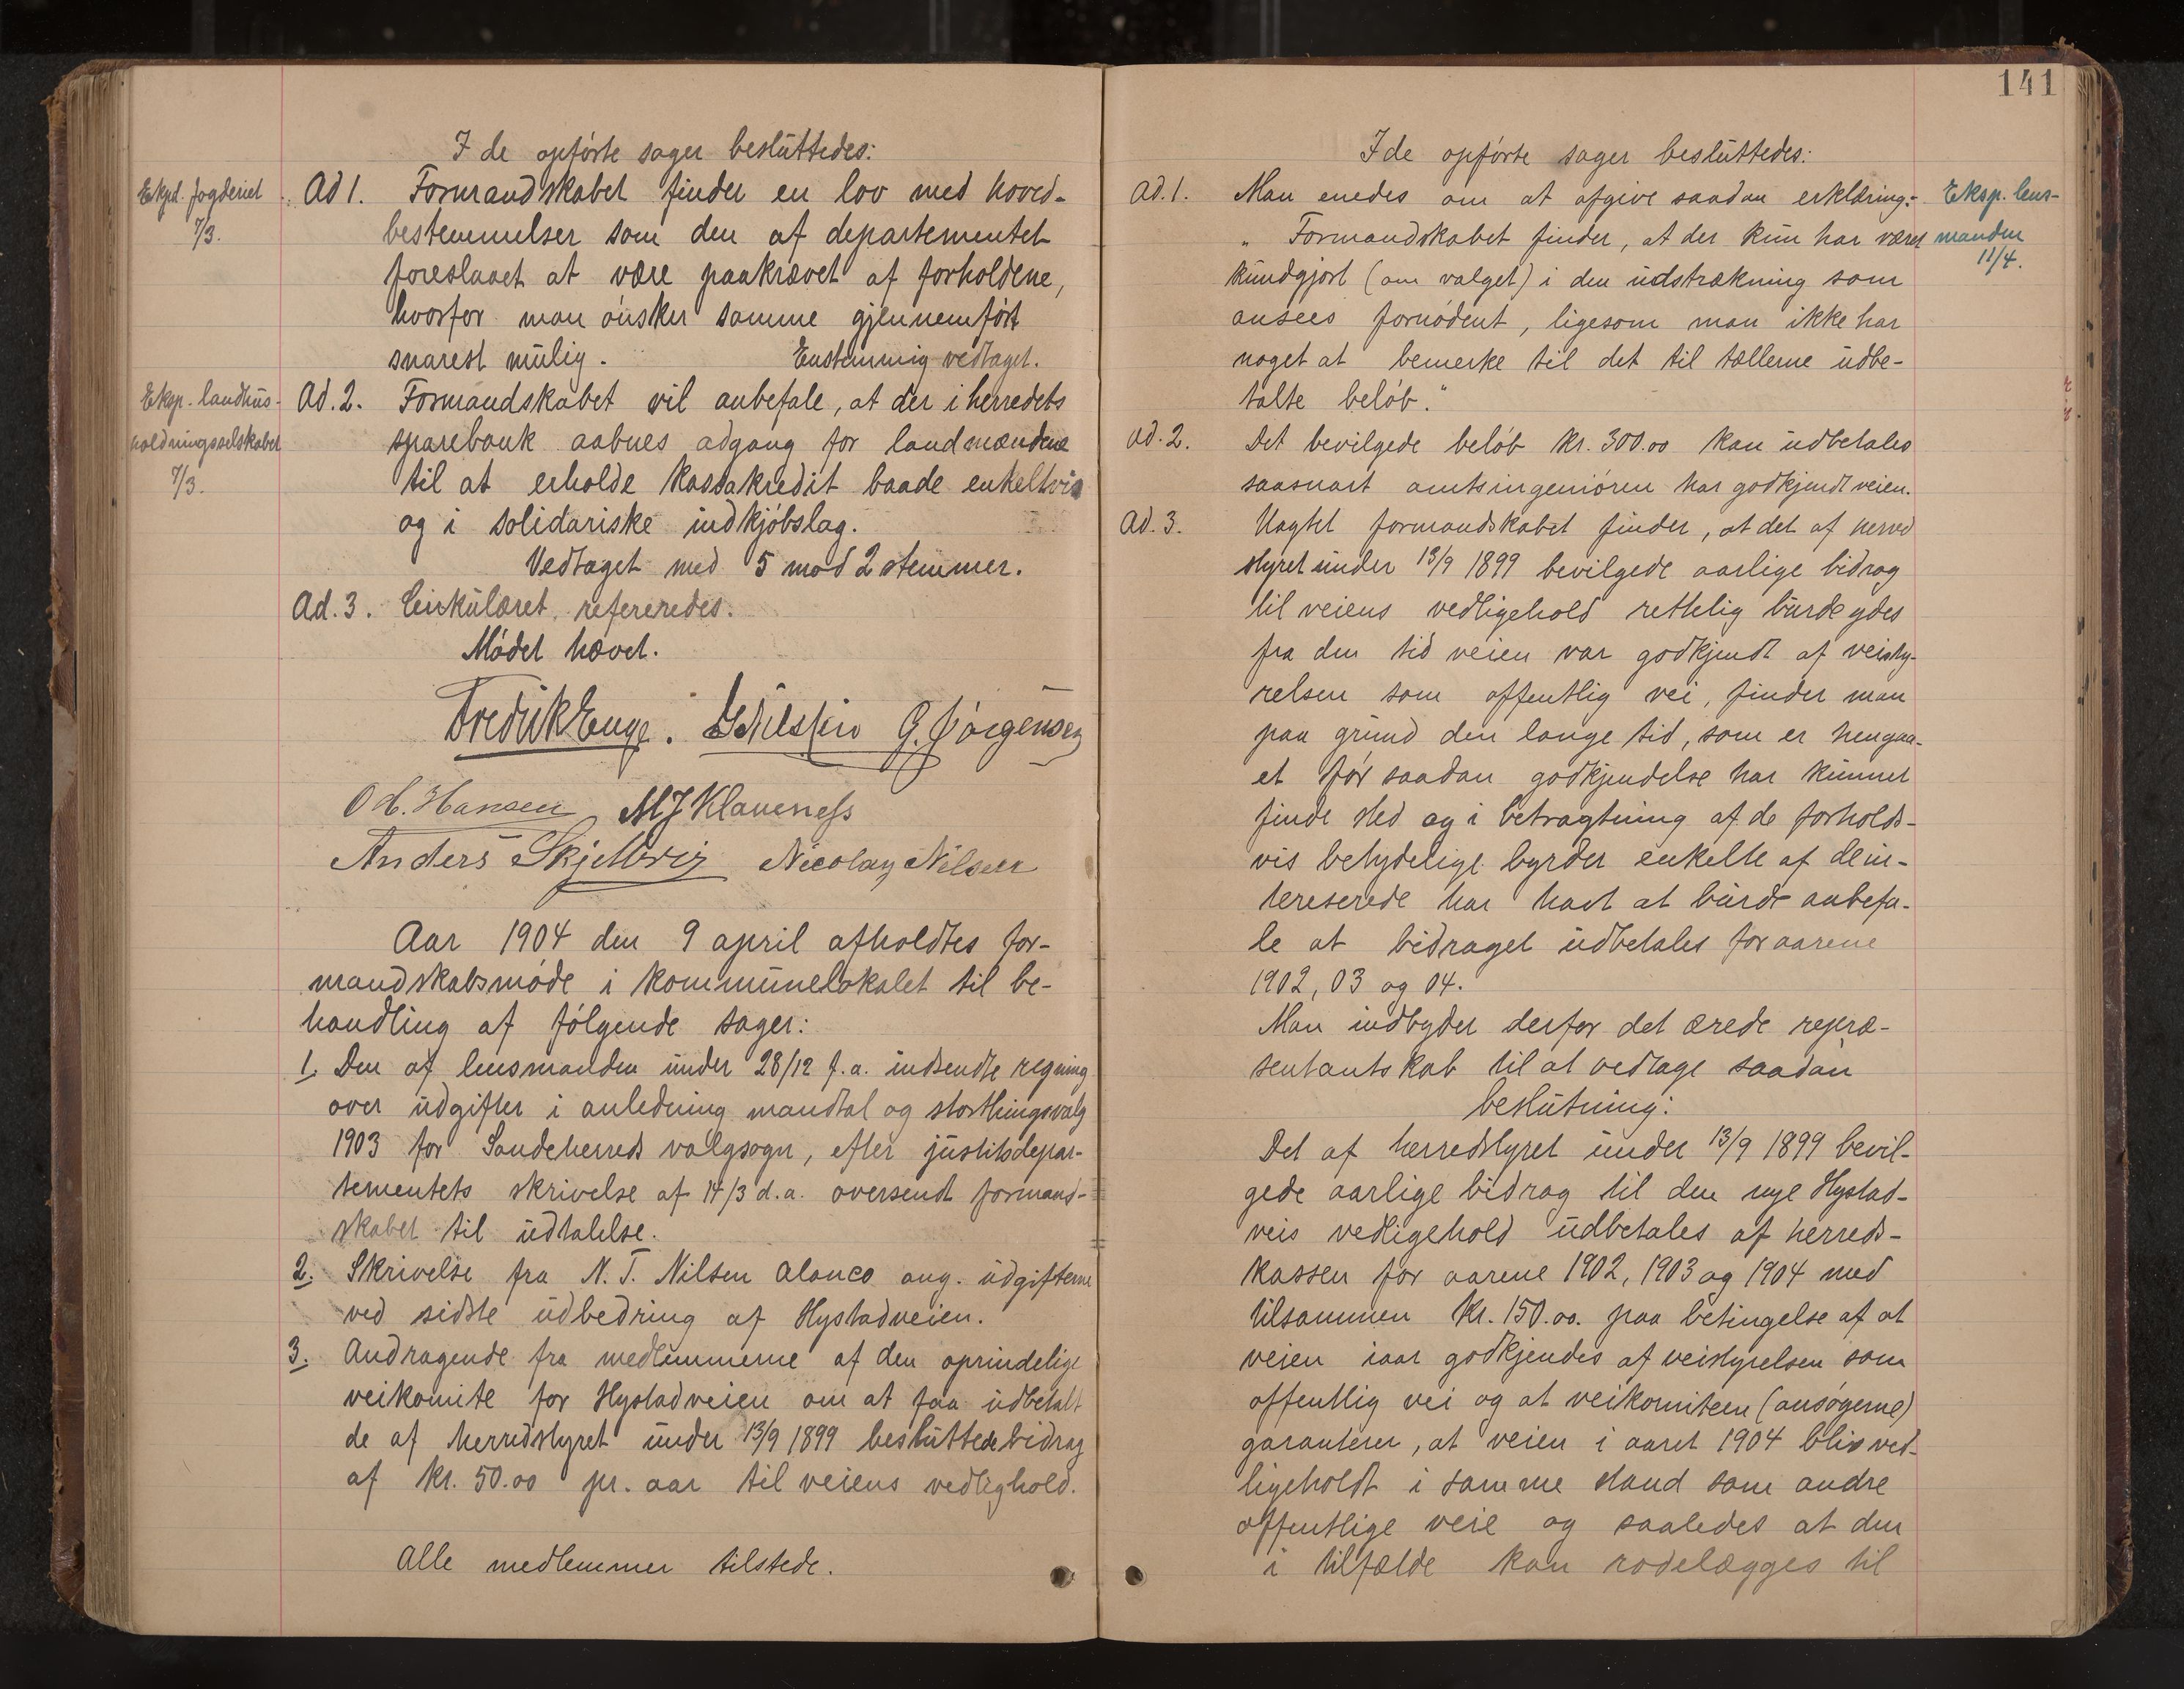 I de opførte sager besluttedes:
Ekspd. fogderiet
7/3.
Ad 1. Formandskabet finder en lov med hoved-
bestemmelser som den af departementet
foreslaaet at være paakrævet af forholdene,
hvorfor man ønsker samme gjennemført
snarest mulig. Enstemmig vedtaget.
Eksp. landhus-
holdningsselskabet
7/3.
Ad. 2. Formandskabet vil anbefale, at der i herredets
sparebank aabnes adgang for landmændene
til at erholde kassakredit baade enkeltvis
og i solidariske indkjøbslag.
Vedtaget med 5 mod 2 stemmer.
Ad. 3. Cirkulæret refereredes.
Mødet hævet.
Fredrik Enge. G. Jørgensen
O H. Hansen MJ Klaveness
Anders Skjelbrei Nicolay Nilsen
Aar 1904 den 9 april afholdtes for-
mandskabsmøde i kommunelokalet til be-
handling af følgende sager:
1. Den af lensmanden under 28/12 f.a. indsendte regning
over udgifter i anledning mandtal og storthingsvalg
1903 for Sandeherreds valgsogn, efter justitsdepar-
tementets skrivelse af 14/3 d.a. oversendt formand-
skabet til udtalelse.
2. Skrivelse fra N. T. Nilsen Alauco ang. udgifterne
ved sidste udbedring af Hystadveien.
3. Andragende fra medlemmerne af den oprindelige
veikomite for Hystadveien om at faa udbetalt
de af herredstyret under 13/9 1899 besluttede bidrag
af kr. 50.00 pr. aar til veiens vedlighold.
Alle medlemmer tilstede.
141
I de opførte sager besluttedes:
Ad. 1. Man enedes om at afgive saadan erklæring:-
Eksp. lens-
manden
11/4.
" Formandskabet finder, at der kun har været
kundgjort (om valget) i den udstrækning som
ansees fornødent, ligesom man ikke har
noget at bemerke til det til tællerne udbe-
talte beløb."
Ad. 2. Det bevilgede beløb kr. 300.00 kan udbetales
saasnart amtsingeniøren har godkjendt veien.
Ad. 3. Uagtet formandskabet finder, at det af herred
styret under 13/9 1899 bevilgede aarlige bidrag
til veiens vedligehold rettelig burde ydes
fra den tid veien var godkjendt af veisty-
relsen som offentlig vei, finder man
paa grund den lange tid, som er hengaa-
et før saadan godkjendelse har kunnet
finde sted og i betragtning af de forholds-
vis betydelige byrder enkelte af de in-
tereserede har havt at burde anbefa-
le at bidraget udbetales for aarene
1902, 03 og 04.
Man indbyder derfor det ærede repræ-
sentantskab til at vedtage saadan
beslutning:
Det af herredstyret under 13/9 1899 bevil-
gede aarlige bidrag til den nye Hystad-
veis vedligehold udbetales af herreds-
kassen for aarene 1902, 1903 og 1904 med
tilsammen kr. 150.00. paa betingelse af at
veien iaar godkjendes af veistyrelsen som
offentlig vei og at veikomiteen (ansøgerne)
garanterer, at veien i aaret 1904 blir ved-
ligeholdt i samme stand som andre
offentlige veie og saaledes at den
i tilfælde kan rodelægges til